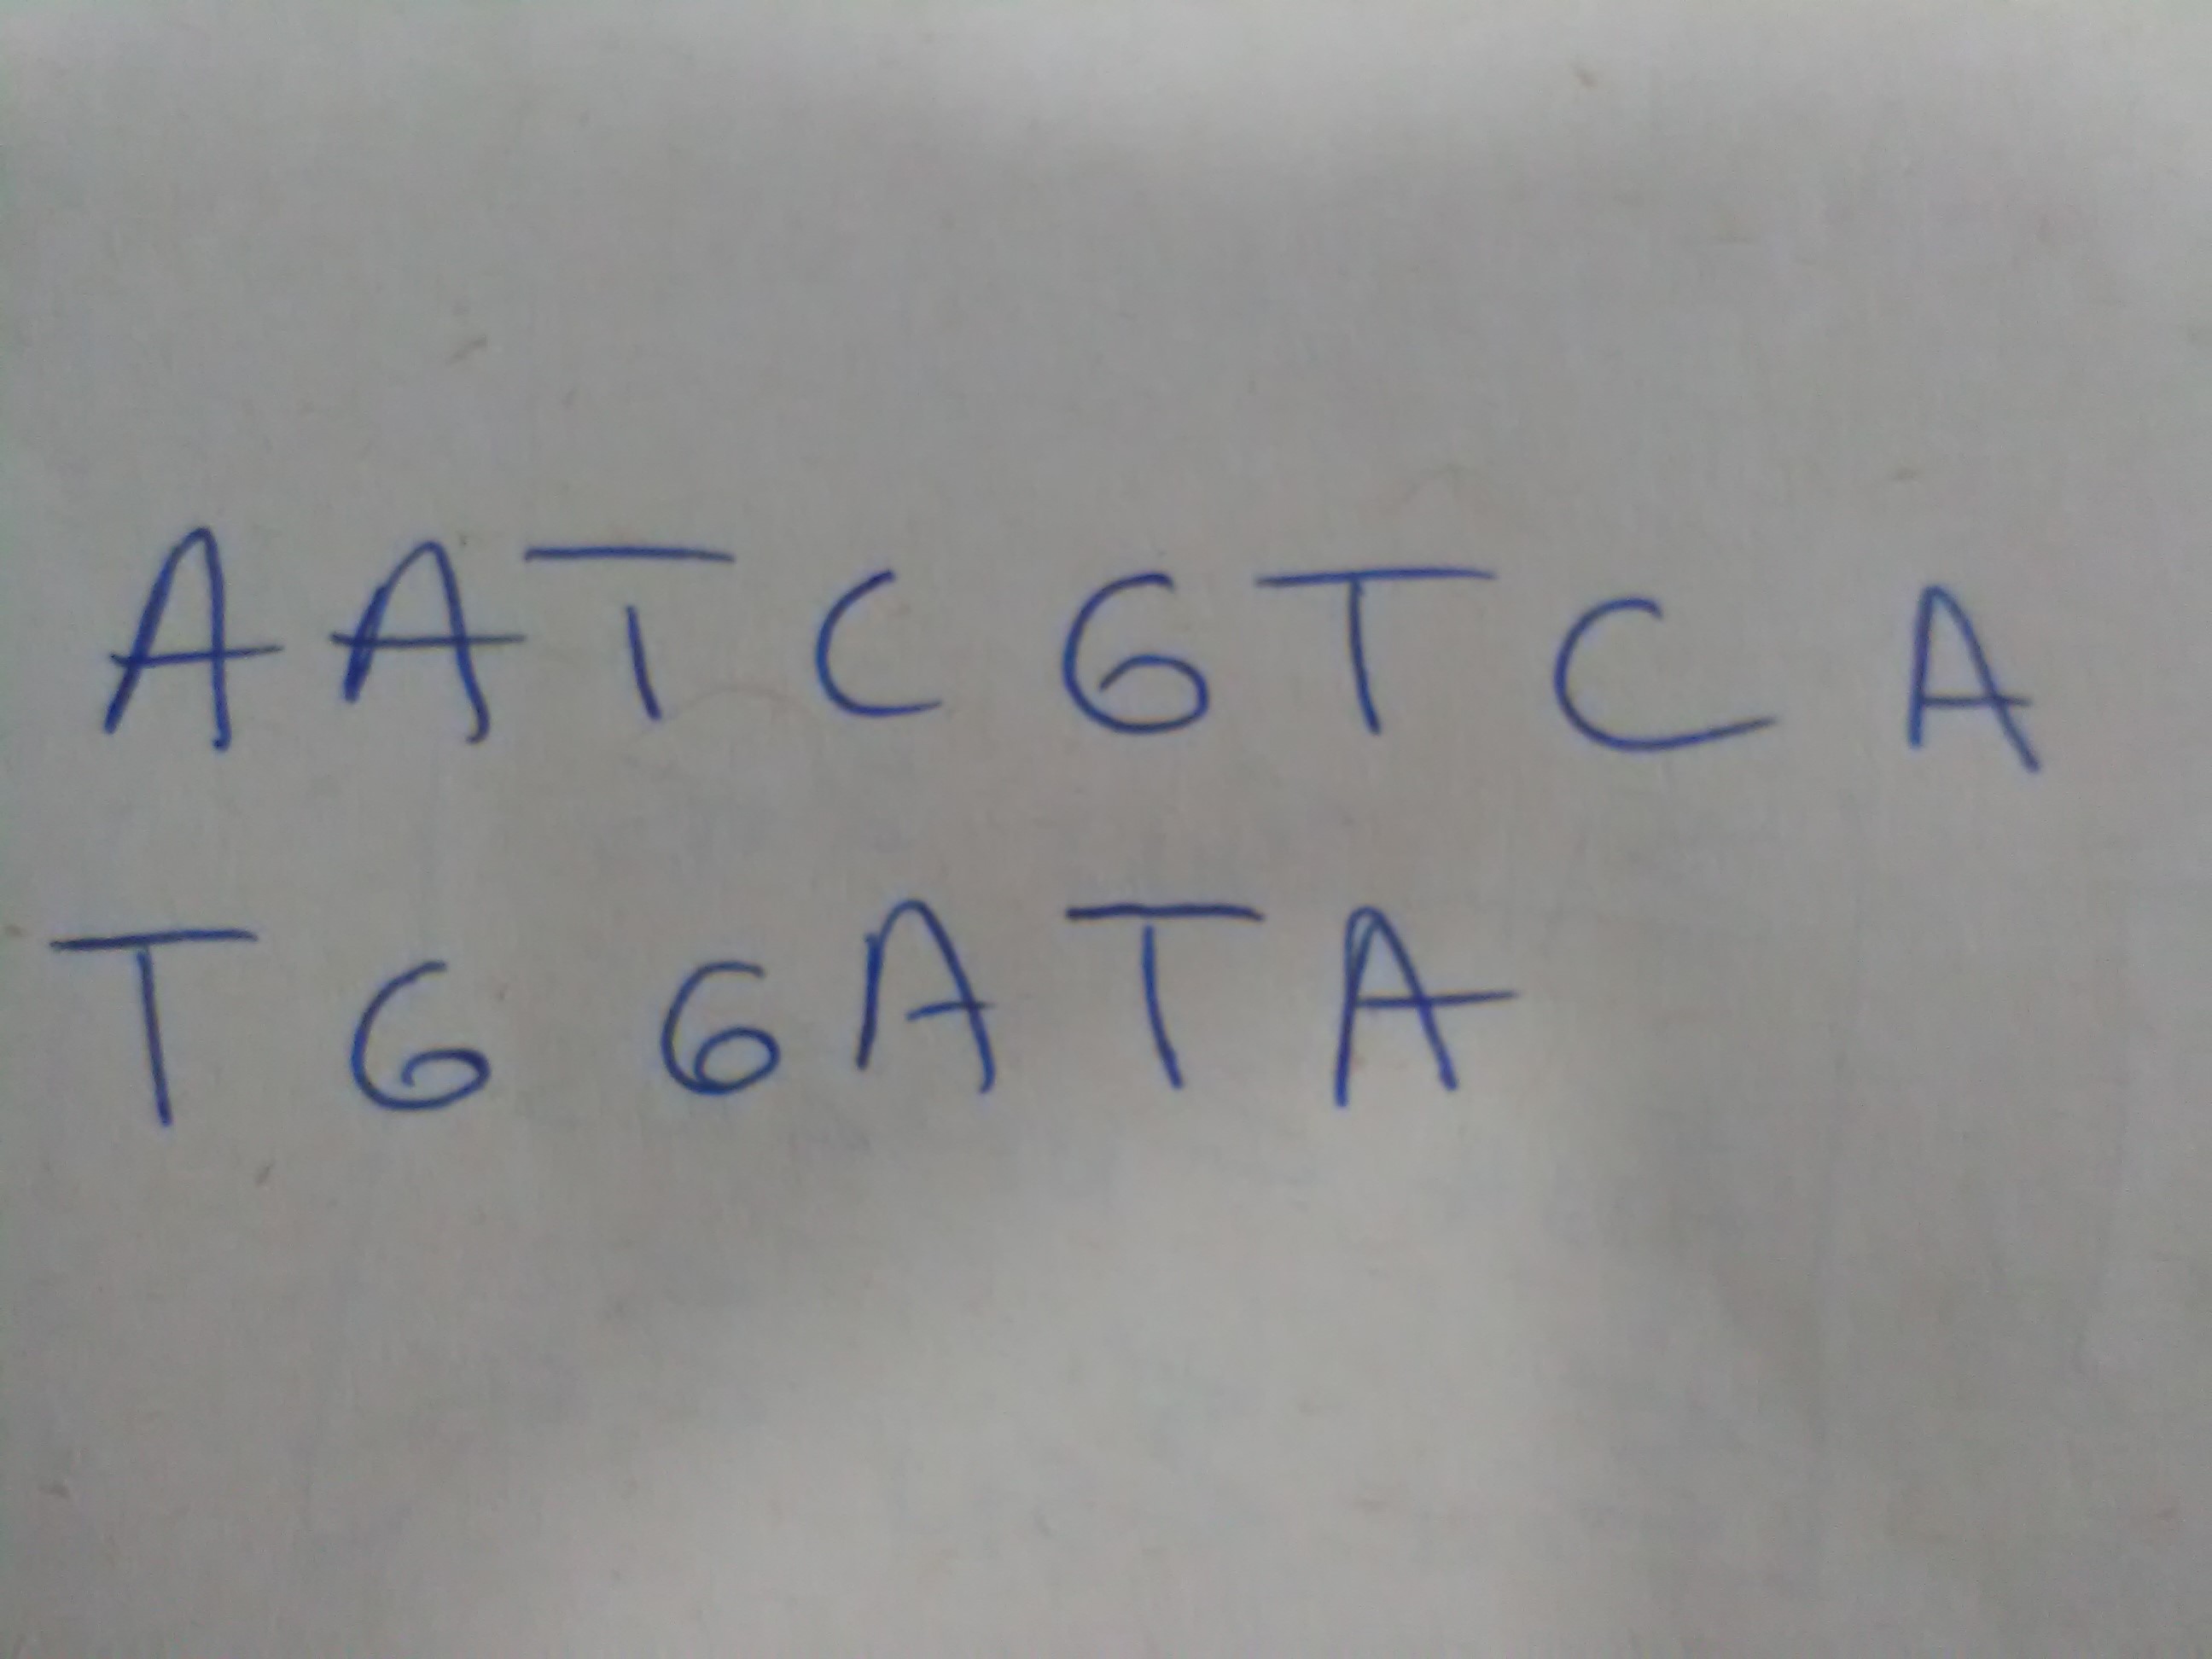 A A T C G T C A
T G G A T A